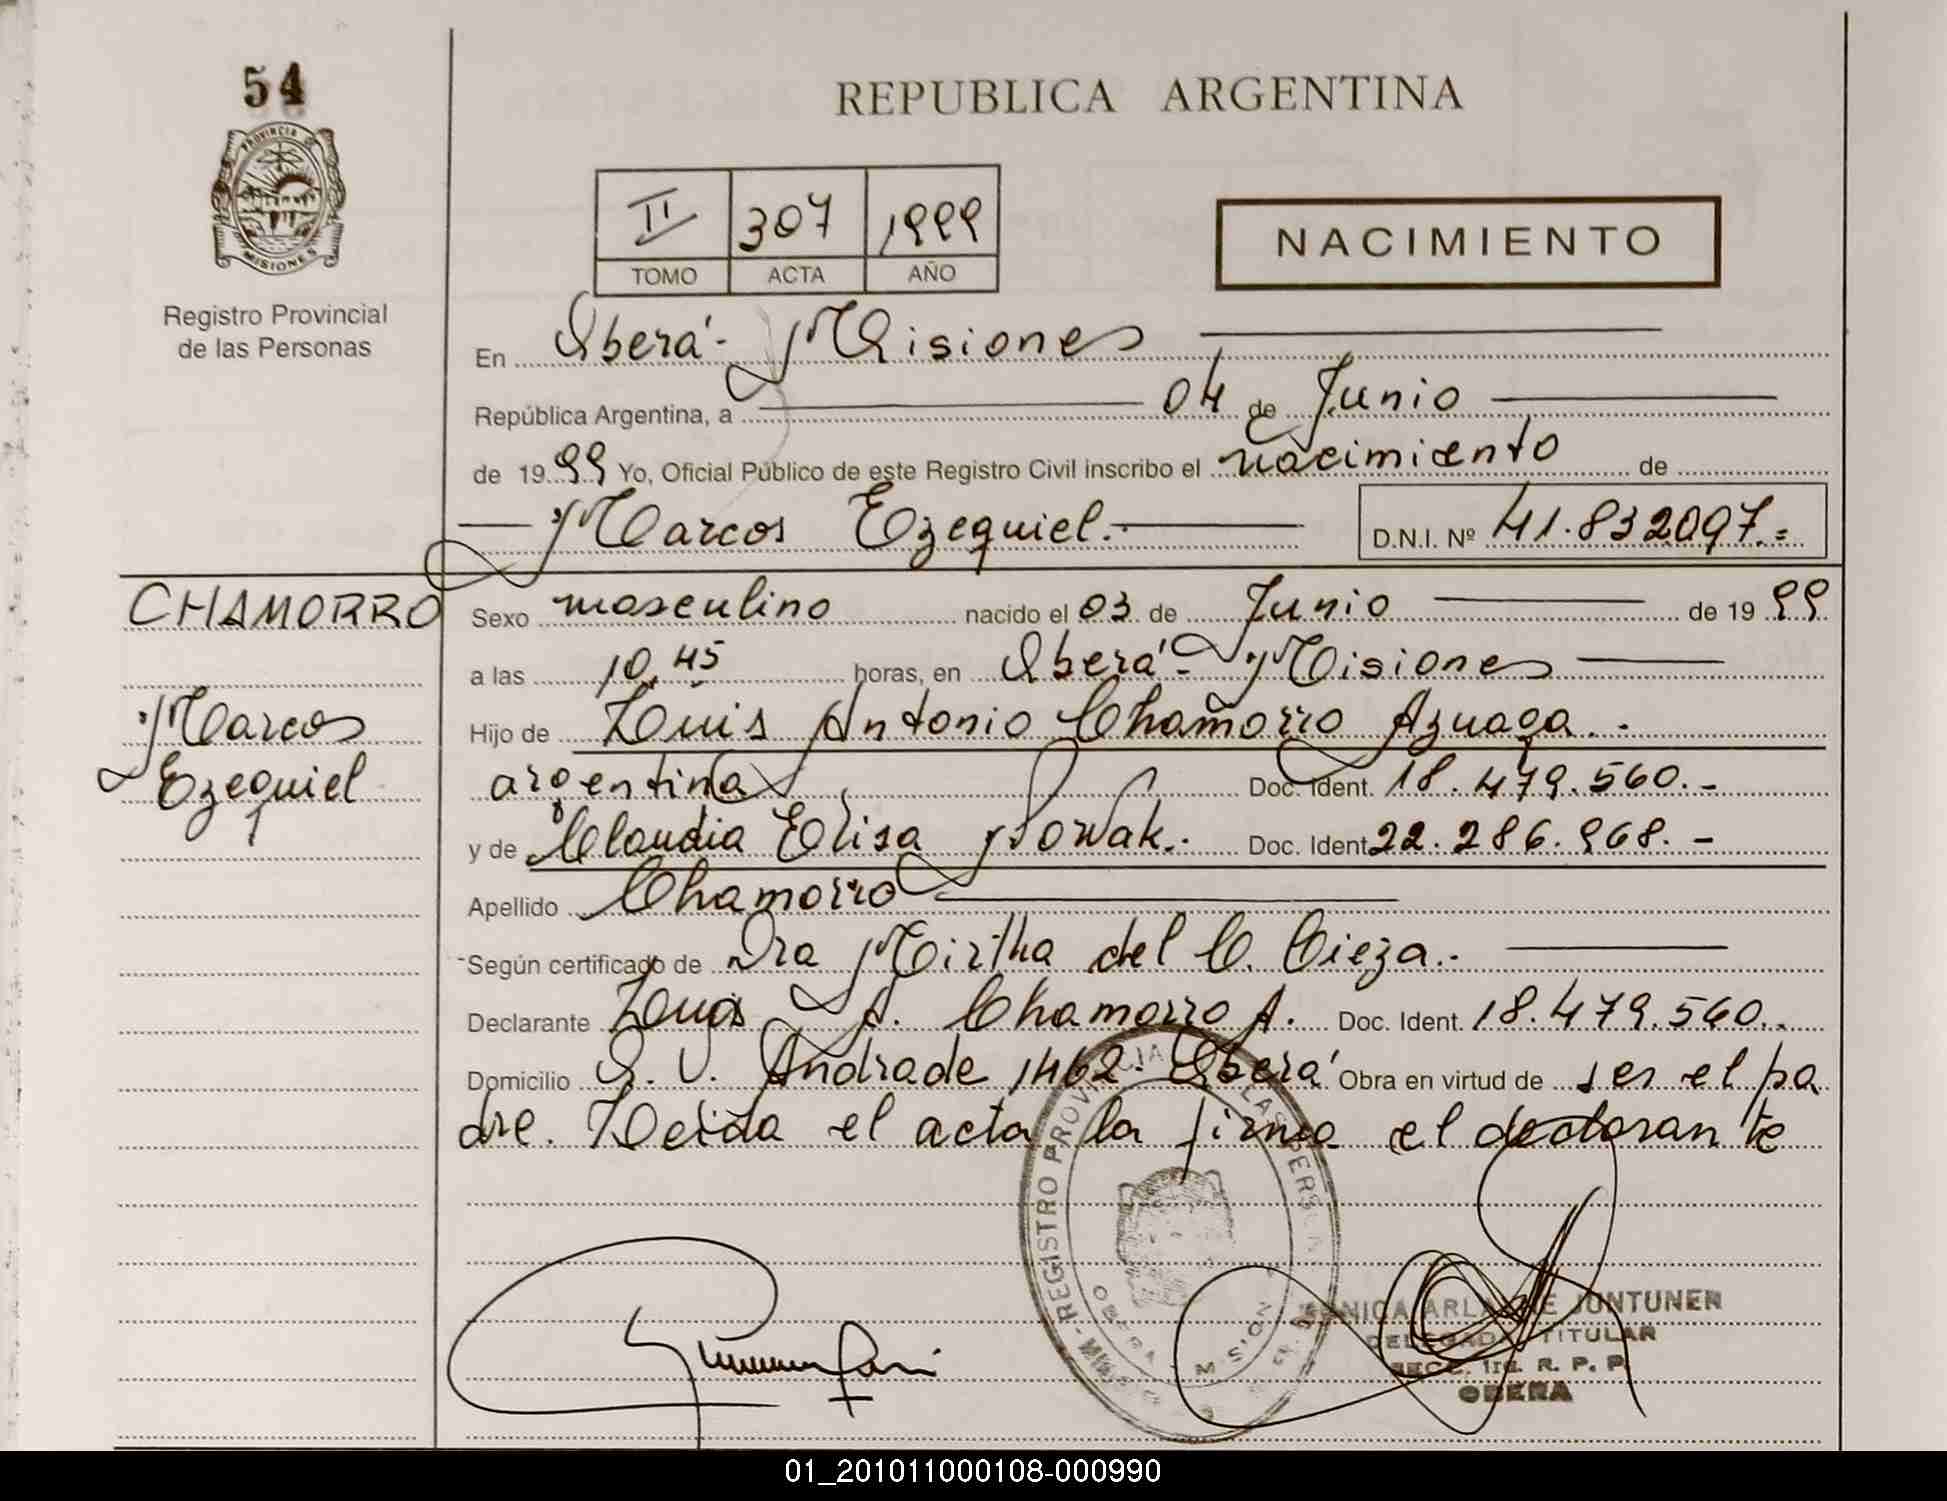 54
PROVINCIA
MISIONES
Registro Provincial
de las Personas
REPUBLICA ARGENTINA
II 307 1999
TOMO ACTA AÑO
NACIMIENTO
En Oberá - Misiones
República Argentina, a 04 de Junio
de 1999 Yo, Oficial Público de este Registro Civil inscribo el nacimiento de
Marcos Ezequiel.- D.N.I. Nº 41.832097.=
CHAMORRO
Marcos
Ezequiel
Sexo masculino nacido el 03 de Junio de 1999
a las 10,45 horas, en Oberá - Misiones
Hijo de Luis Antonio Chamorro Azuaga.-
argentina Doc. Ident. 18.479.560.-
y de Claudia Elisa Nowak.- Doc. Ident. 22.286.968.-
Apellido Chamorro
Según certificado de Dra Mirtha del C. Cieza.-
Declarante Luis A. Chamorro A. Doc. Ident. 18.479.560.-
Domicilio O. V. Andrade 1462 - Oberá Obra en virtud de ser el pa
dre. Leida el acta la firma el declarante
REGISTRO PROVINCIAL DE LAS PERSONAS
OBERA MISIONES
MONICA ARLANE JUNTUNEN
DELEGADA TITULAR
SECC. 1ra. R. P. P.
OBERA
01_201011000108-000990